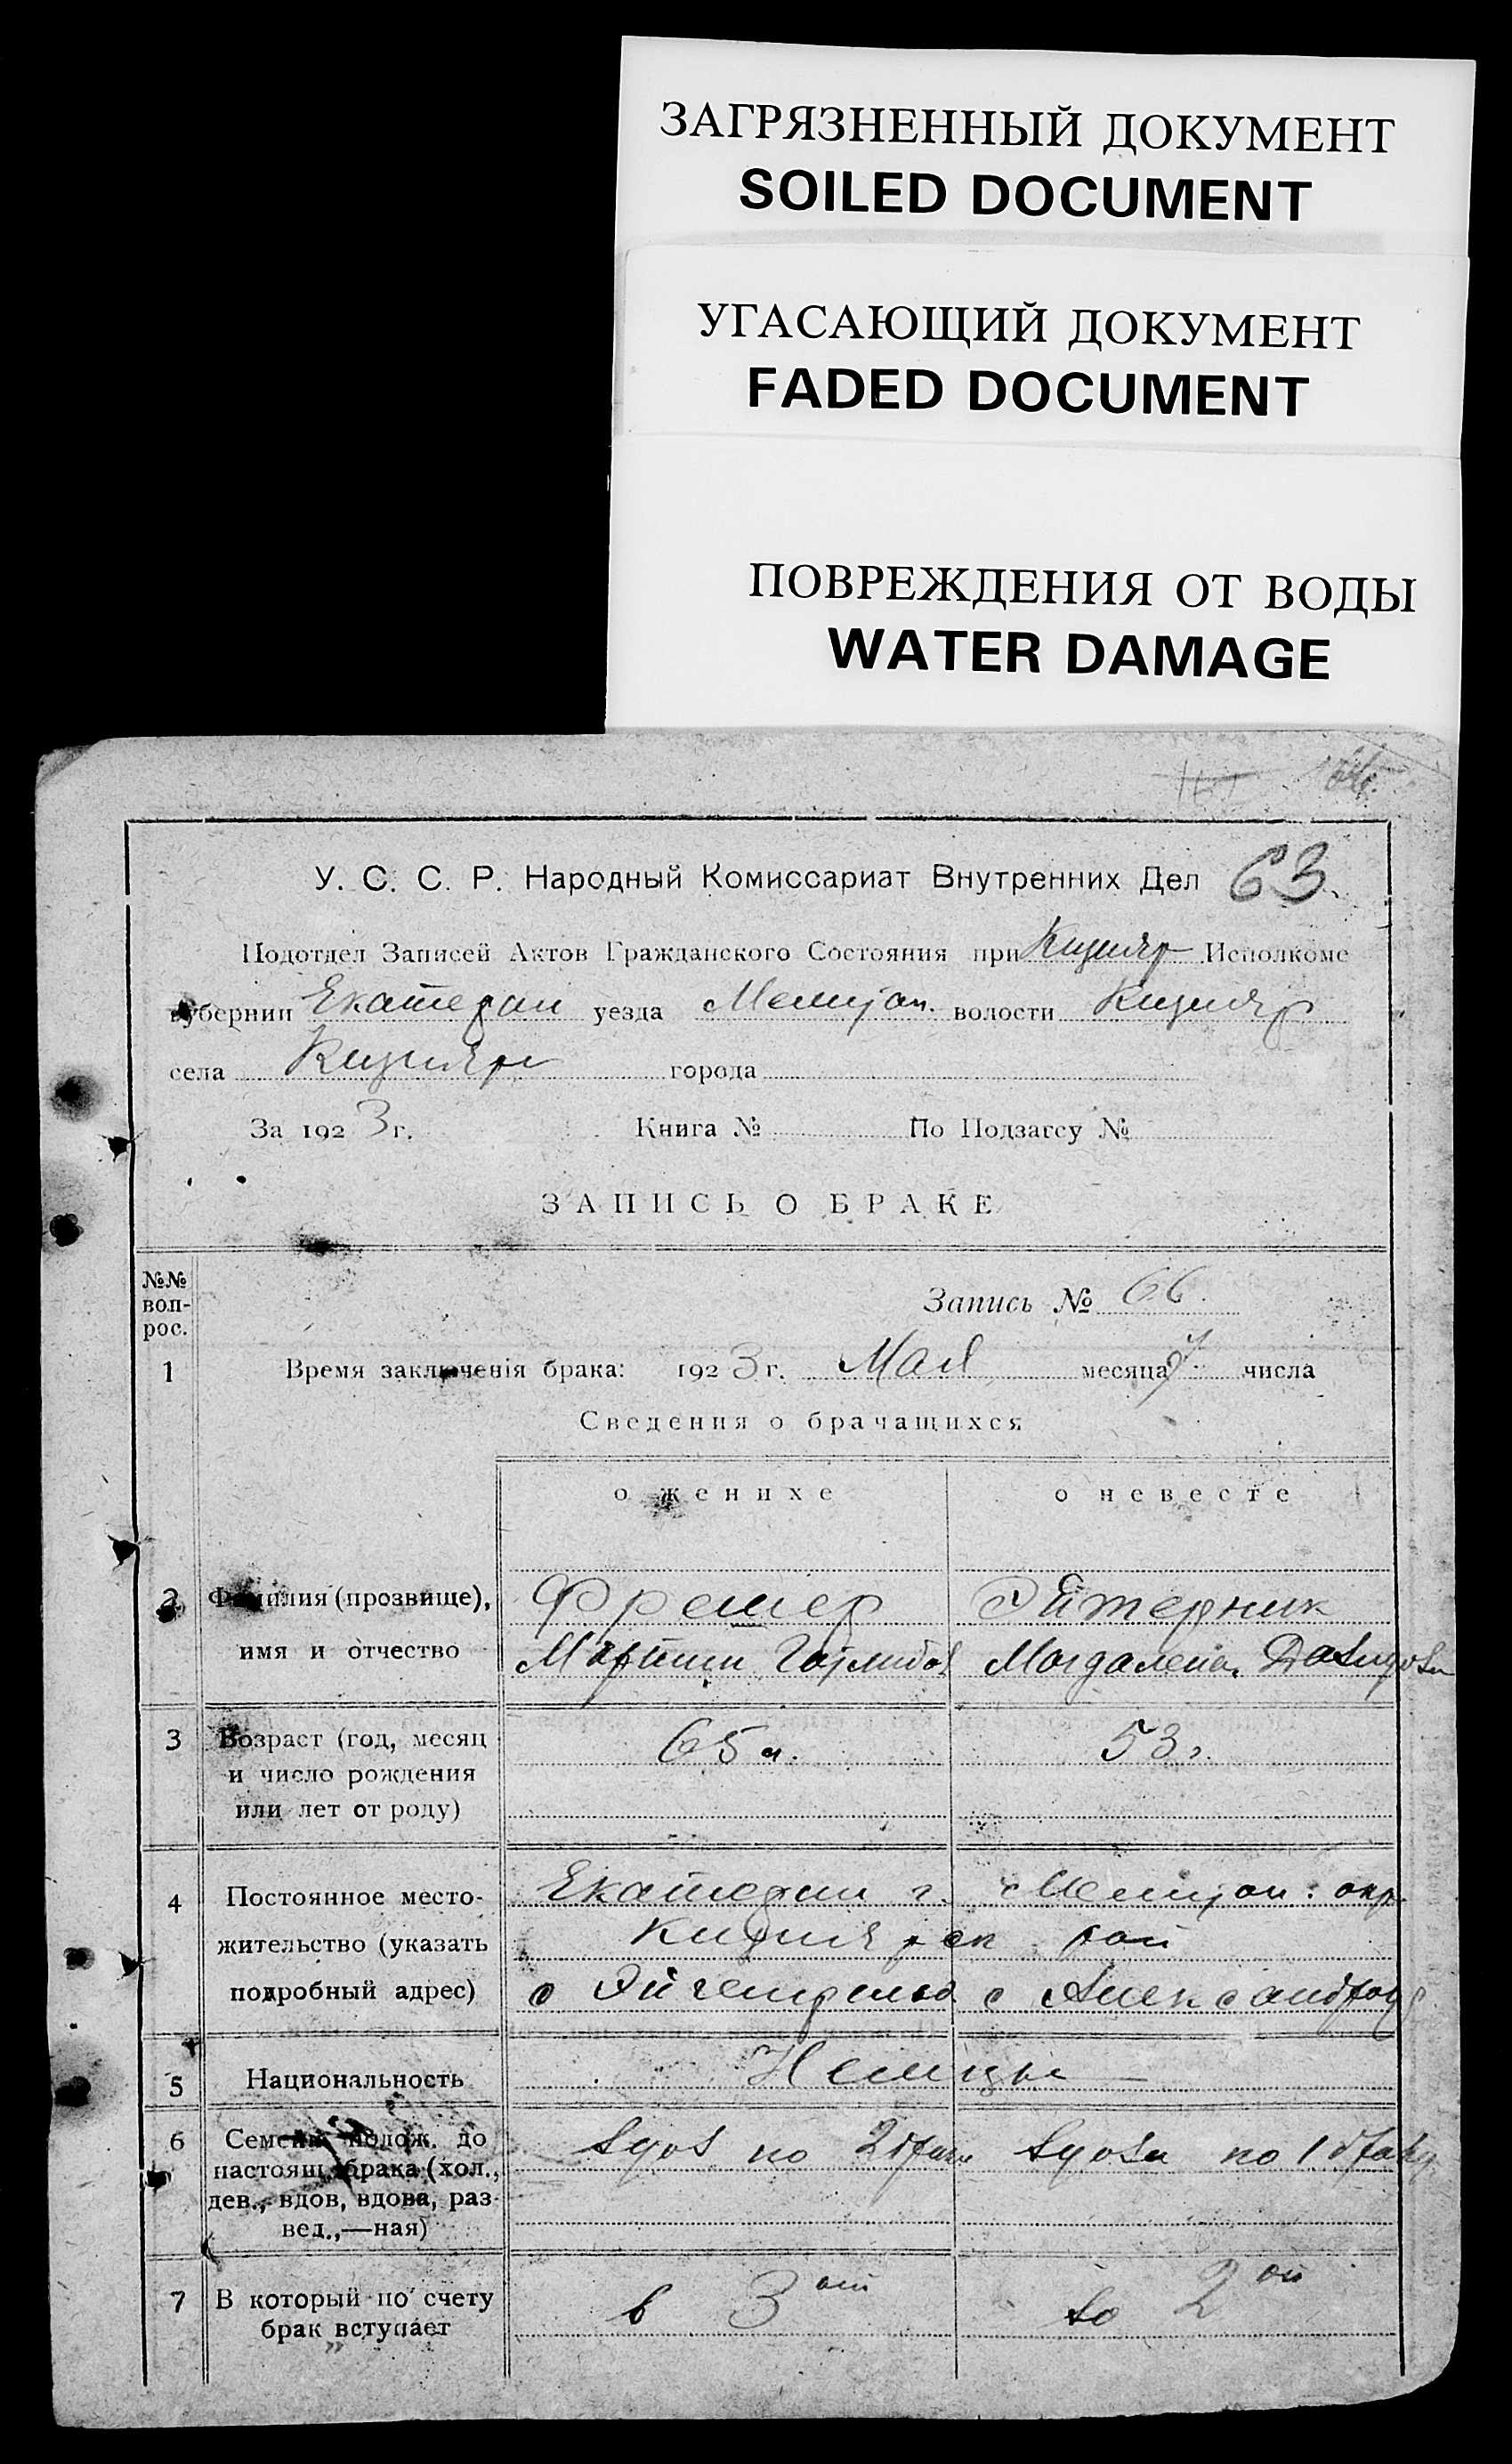 ЗАГРЯЗНЕННЫЙ ДОКУМЕНТ
SOILED DOCUMENT
УГАСАЮЩИЙ ДОКУМЕНТ
FADED DOCUMENT
ПОВРЕЖДЕНИЯ ОТ ВОДЫ
WATER DAMAGE
У. С. С. Р. Народный Комиссариат Внутренних Дел 63
Подотдел Записей Актов Гражданского Состояния при Кизияр Исполкоме
губернии Екатерин уезда волости Кизияр
села Кизияр города
За 1923 г. Книга № По Подзагсу №
ЗАПИСЬ О БРАКЕ
№№ воп-
рос.
Запись № 66
1 Время заключенія брака: 1923 г. Мая месяца числа
Сведения о брачащихся
о женихе о невесте
2 Фамилия (прозвище), Фрешер Эйтерник
имя и отчество Мартин Готлибов Магдалена Давидовн
3 Возраст (год, месяц 65 л. 53 г.
и число рождения
или лет от роду)
4 Постоянное место- Екатерин г. Мелитоп. окр.
жительство (указать Кизиярск рай
подробный адрес) с Эйгенфельд с
5 Национальность Немцы
6 Семейн. полож. до вдов по 2 браку вдова по 1 браку
настоящ. брака (хол.,
дев., вдов, вдова, раз-
вед.,—ная)
7 В который по счету в 3 ий во 2 ой
брак вступает